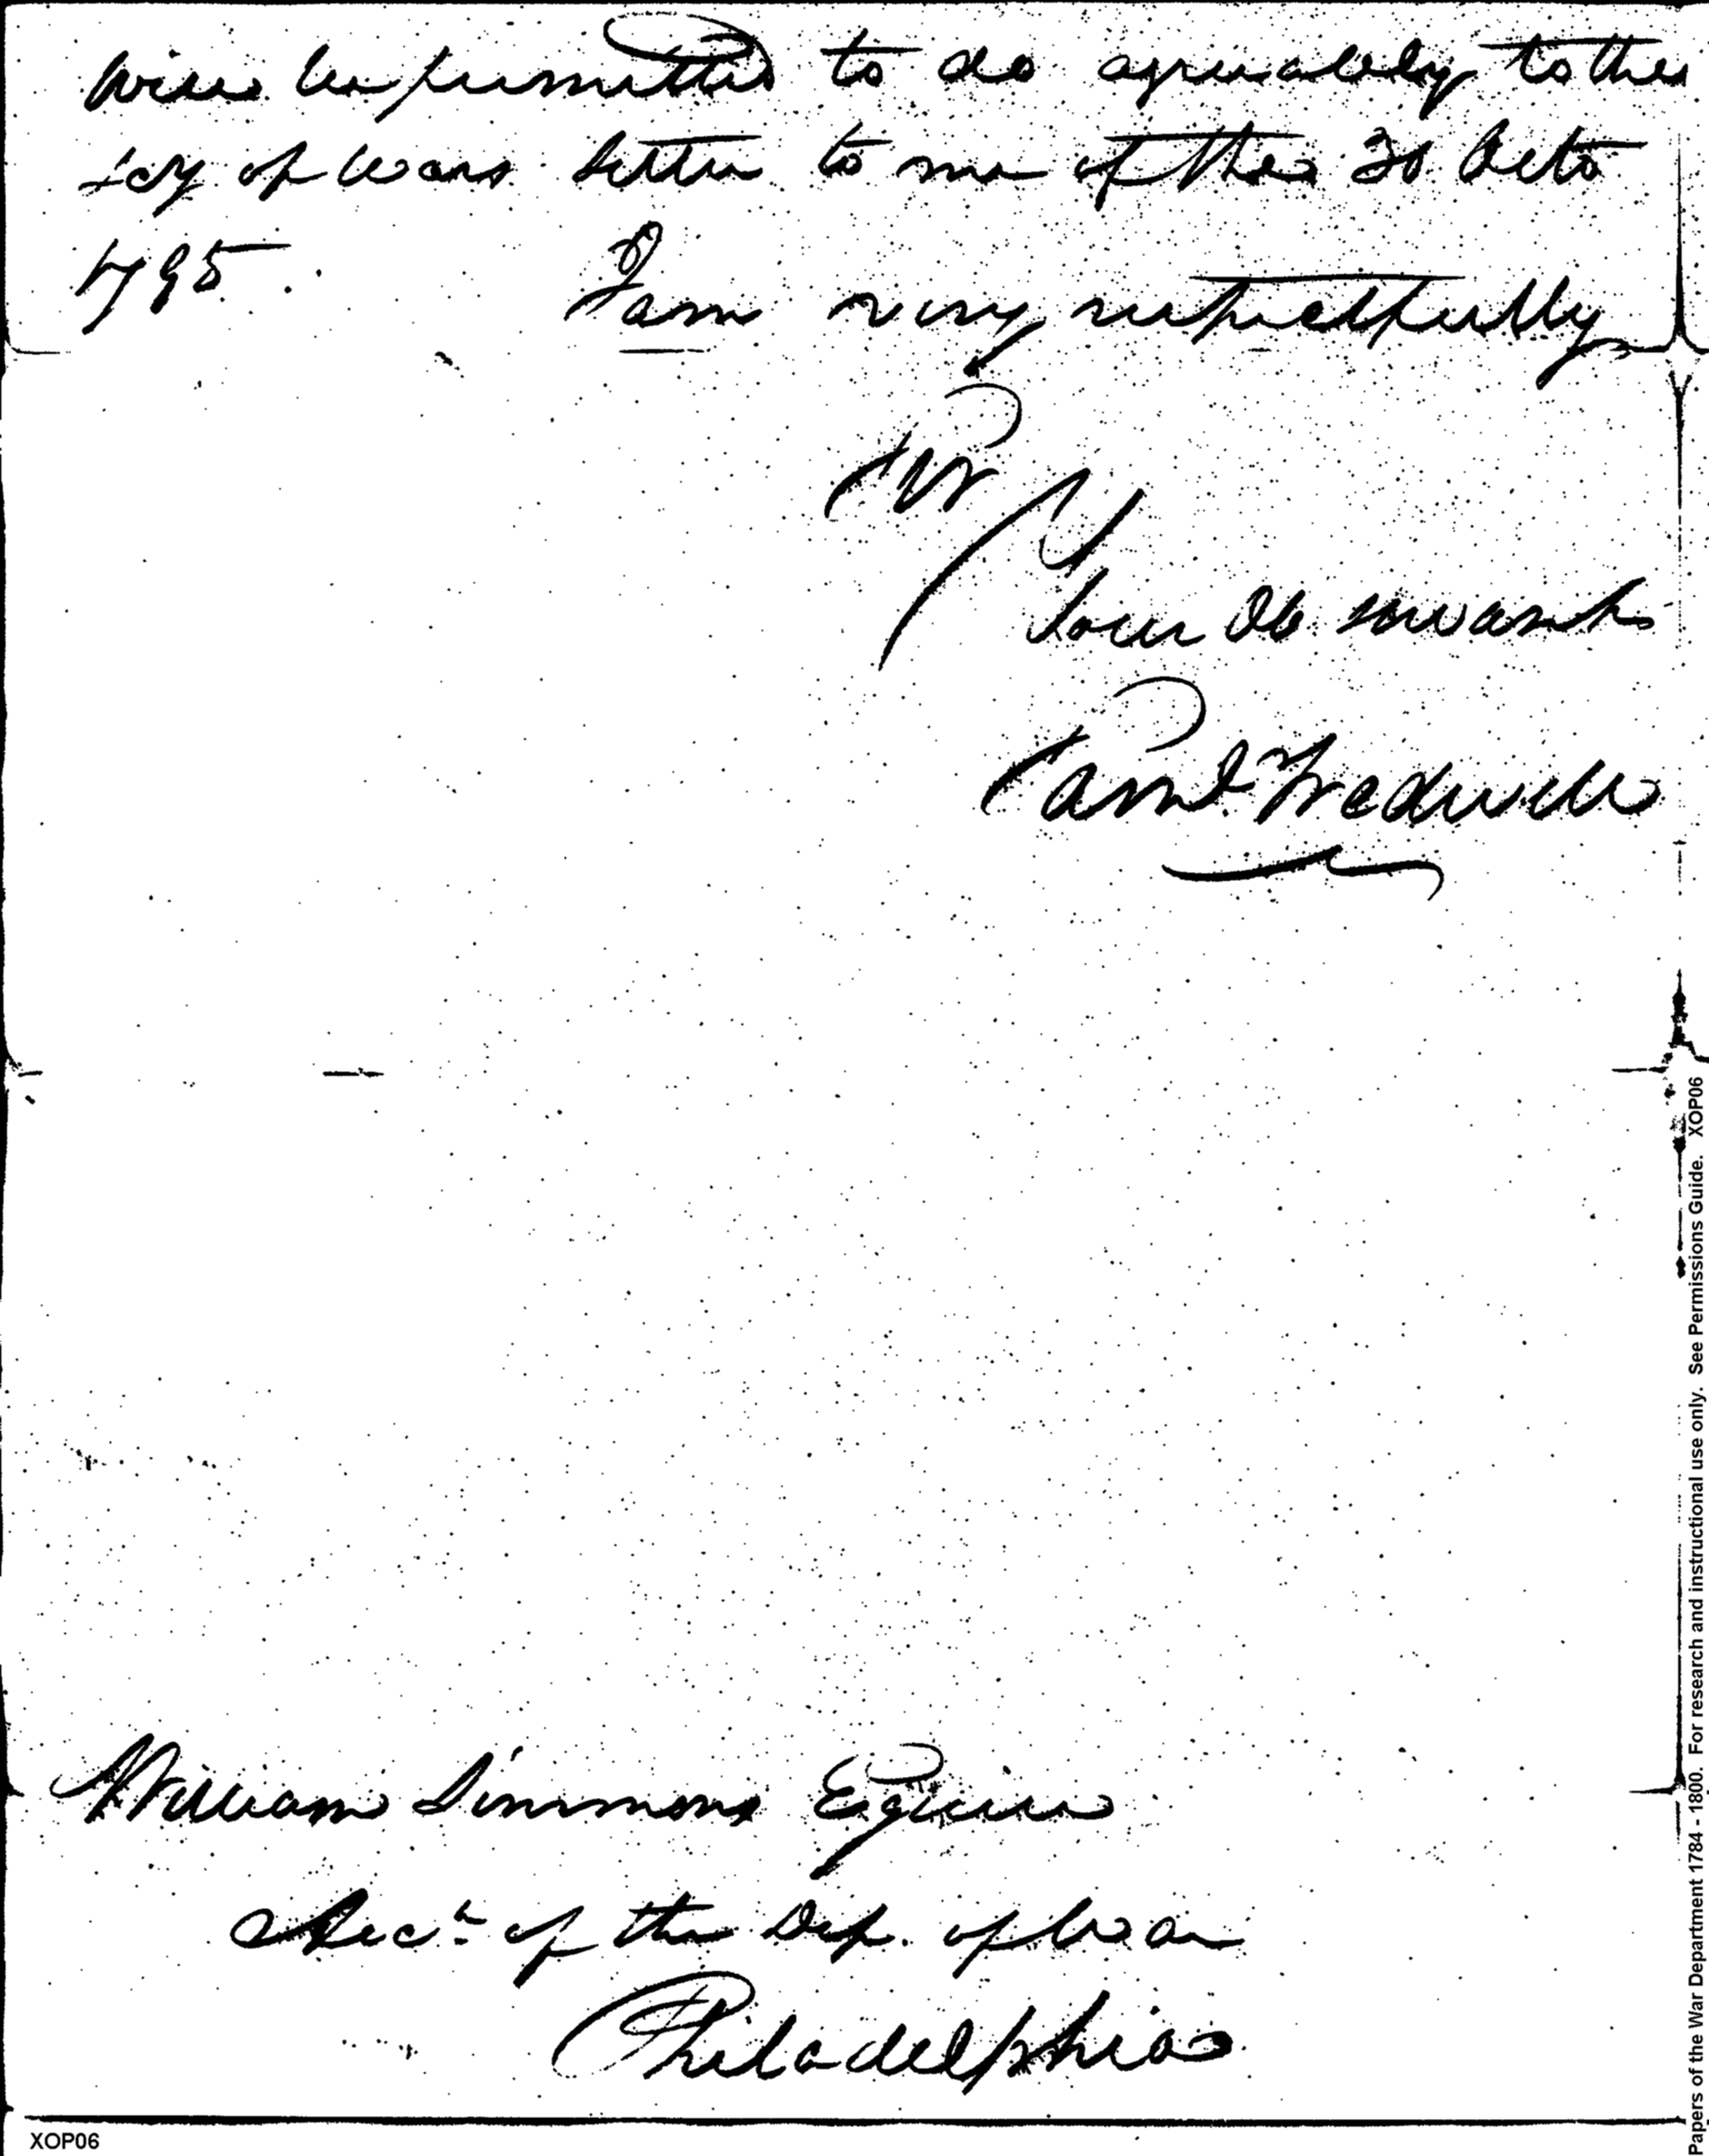 will be permitted to do agreeably to the
Secy of Wars letter to me of the 30 Octo
1795. I am very respectfully
Sir
Your Ob servant
Saml Tredwell
William Simmons Esquire
Acct of the Dep. of War
Philadelphia
XOP06
Papers of the War Department 1784 - 1800. For research and instructional use only. See Permissions Guide. XOP06